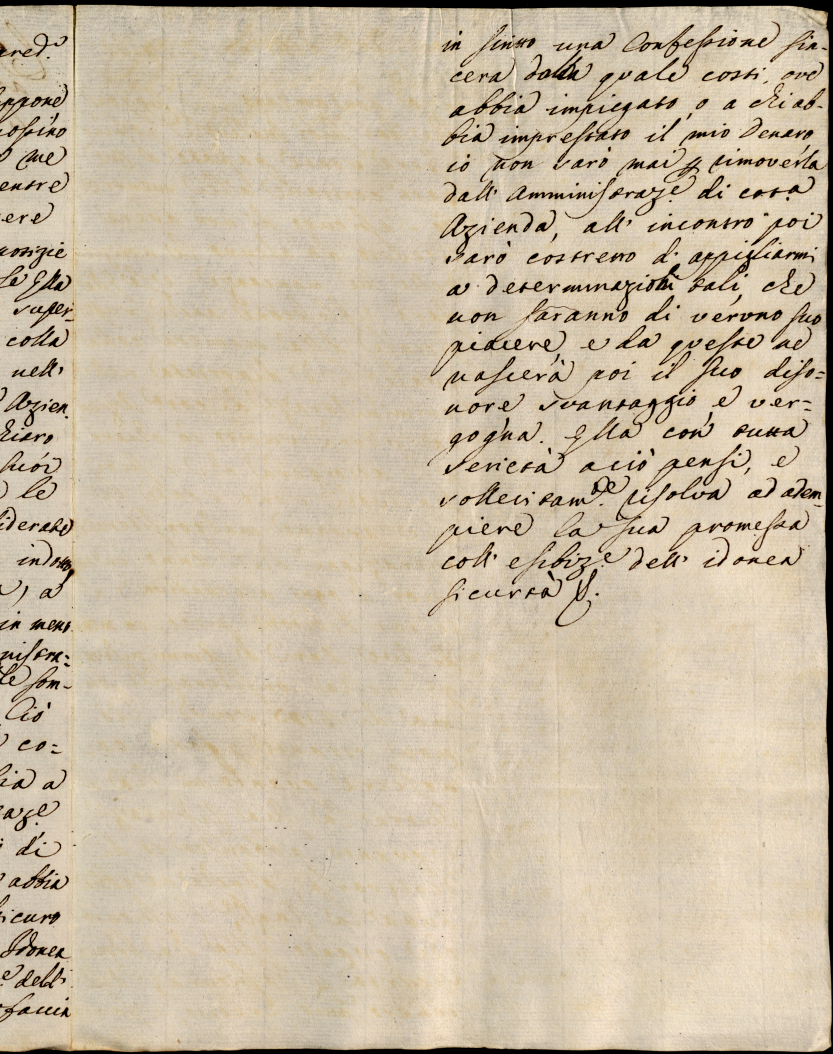 ared.e
ppone
ossino
o me
entre
ere
notizie
se Ella
super-
colla
nell'
Azien
chiaro
suoi
le
siderato
indotto
a, a
in ment
nistra=
le som-
Ciò
co=
sia a
raz.e
di
abbia
sicuro
Idonea
e dell'
faccia
in sinto una Confessione sin-
cera dalla quale costi, ove
abbia impiegato, o a chi ab-
bia imprestato il mio Denaro
io non sarò mai p rimoverla
dall' Amministraz.e di cot.a
Azienda, all' incontro poi
sarò costretto d' appigliarmi
a determinazioni tali, che
non saranno di veruno suo
piacere, e da queste ne
nascerà poi il suo diso=
nore svantaggio, e ver=
gogna. Ella con tutta
serietà a ciò pensi, e
sollecitam.te risolva ad adem
piere la sua promessa
coll' esibiz.e dell' idonea
sicurtà